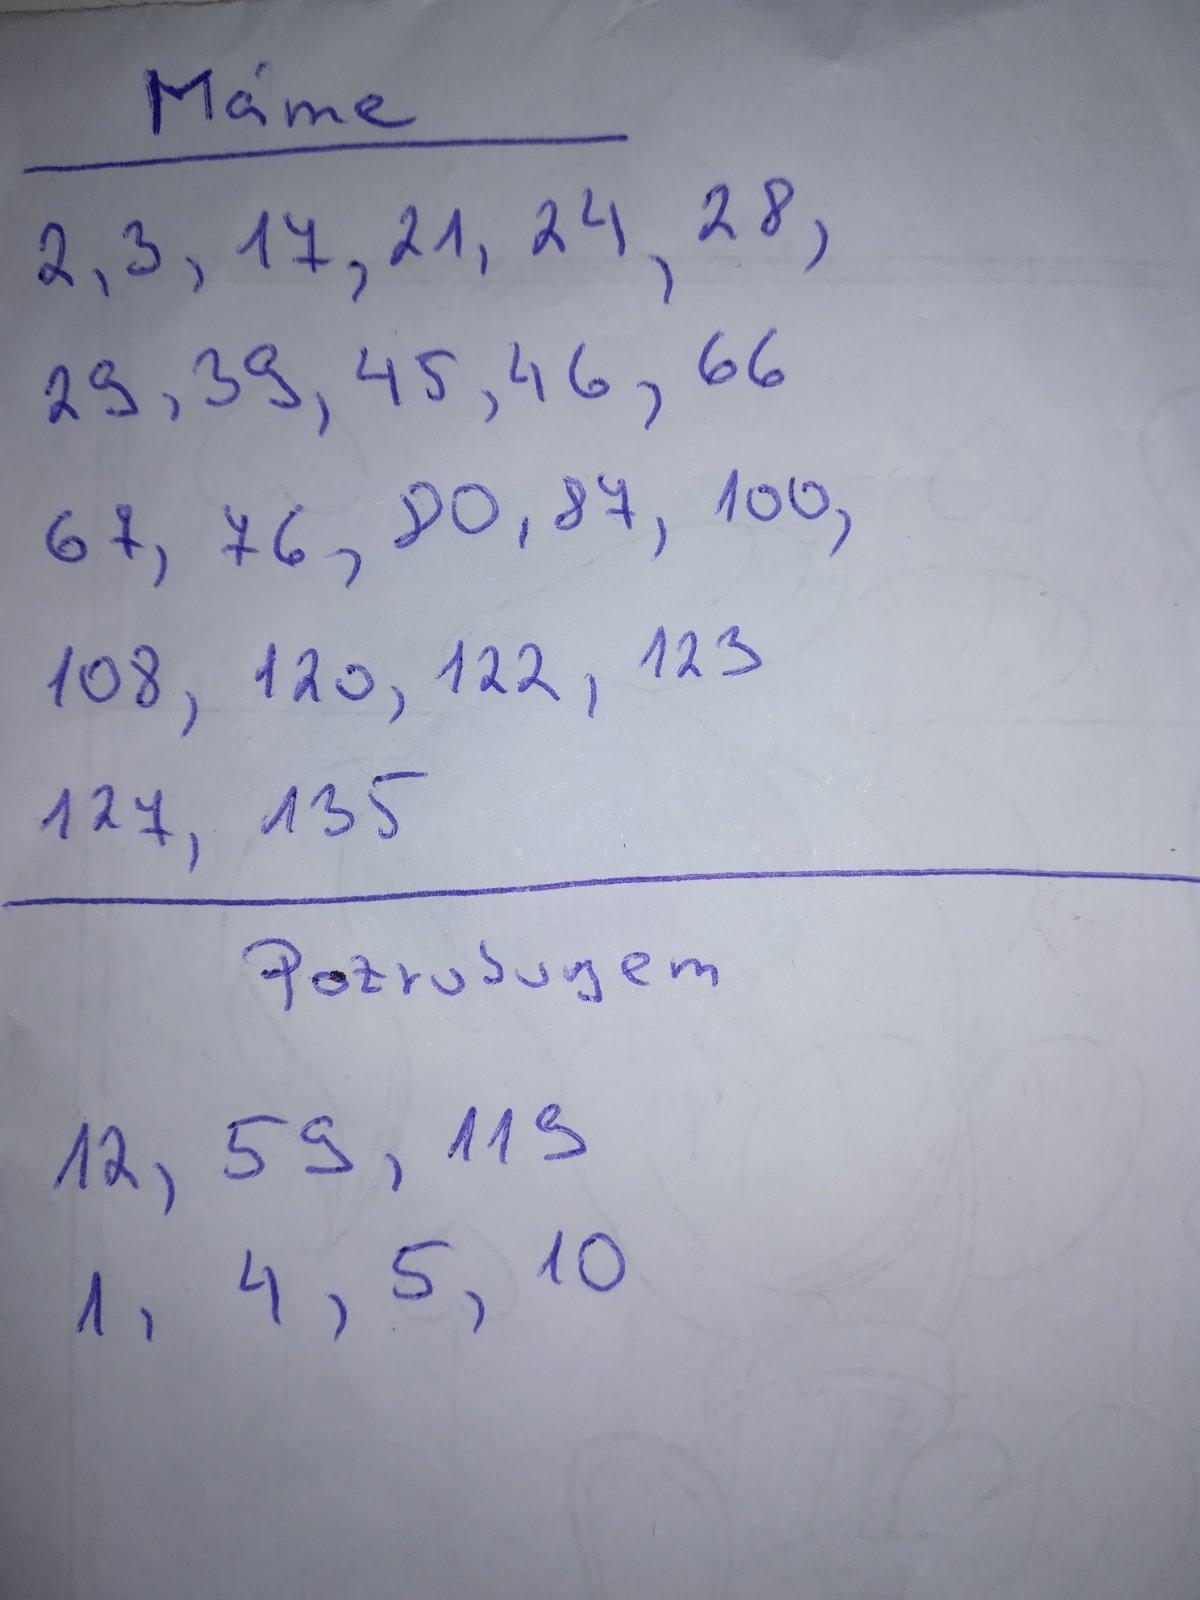 Máme
2, 3, 17, 21, 24, 28,
29, 39, 45, 46, 66
67, 76, 80, 87, 100,
108, 120, 122, 123
127, 135
12, 59, 119
1, 4, 5, 10